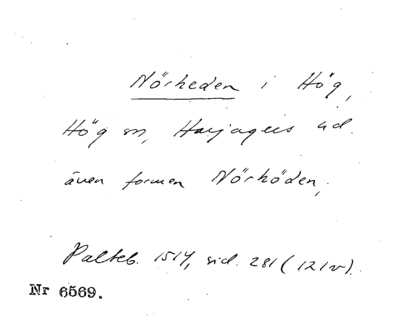 Nörheden i Hög,
Hög sn, Harjagers hd.
även formen Nörhöden,
Palteb. 1514, sid. 281 (121v).
Nr 6569.